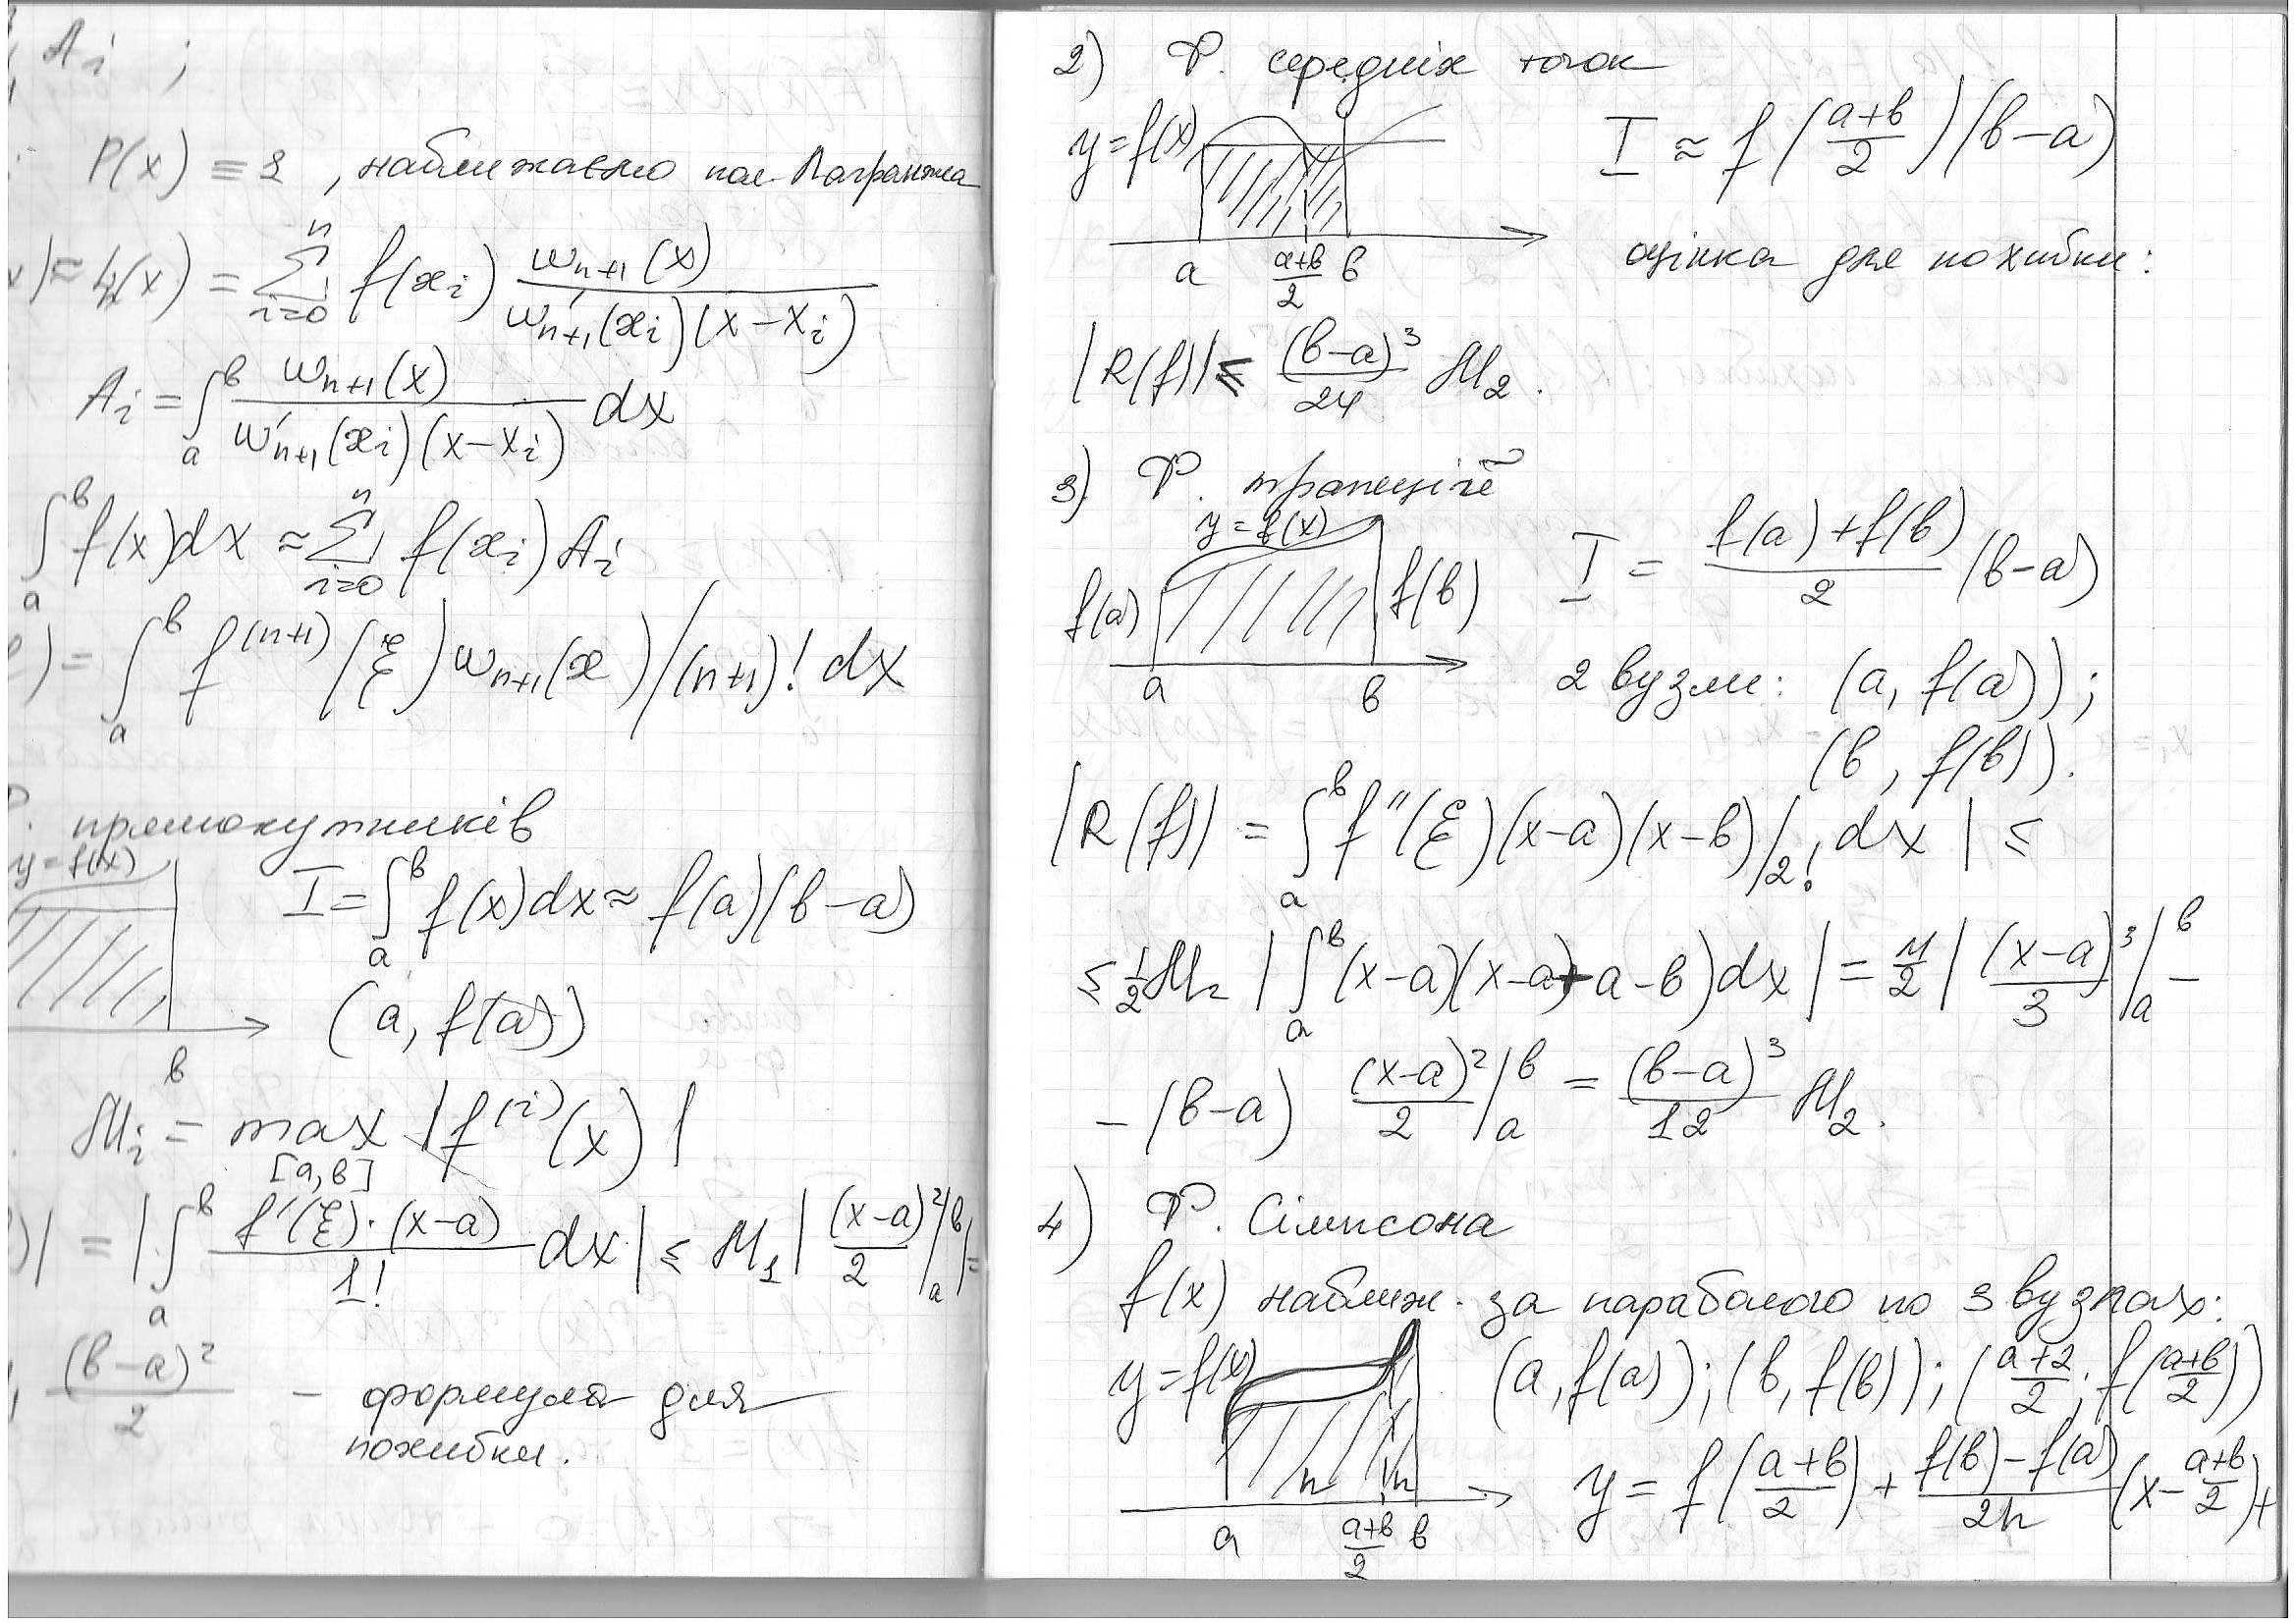 A_i ;
P(x) ≡ 1 , наближаємо пол. Лагранжа
x) ≈ L_n(x) = ∑_{i=0}^{n} f(x_i) ω_{n+1}(x) / (ω'_{n+1}(x_i)(x-x_i))
A_i = ∫_a^b ω_{n+1}(x) / (ω'_{n+1}(x_i)(x-x_i)) dx
∫_a^b f(x)dx ≈ ∑_{i=0}^{n} f(x_i) A_i
) = ∫_a^b f^{(n+1)}(ξ) ω_{n+1}(x)/(n+1)! dx
. прямокутників
y=f(x)
I = ∫_a^b f(x)dx ≈ f(a)(b-a)
(a, f(a))
b
M_i = max_{[a,b]} |f^{(i)}(x)|
)| = |∫_a^b f'(ξ)·(x-a)/1! dx| ≤ M_1 |(x-a)²/2 |_a^b| =
(b-a)²/2 - формула для
похибки.
2) Ф. середніх точок
y=f(x)
I ≈ f((a+b)/2)(b-a)
a (a+b)/2 b
оцінка для похибки:
|R(f)| ≤ (b-a)³/24 M_2.
3) Ф. трапецій
y=f(x)
f(a) f(b)
I = (f(a)+f(b))/2 (b-a)
a b
2 вузли: (a, f(a));
(b, f(b)).
|R(f)| = ∫_a^b f''(ξ)(x-a)(x-b)/2! dx | ≤
≤ 1/2 M_2 |∫_a^b (x-a)(x-a+a-b)dx| = M/2 |(x-a)³/3 |_a^b -
- (b-a) (x-a)²/2 |_a^b = (b-a)³/12 M_2.
4) Ф. Сімпсона
f(x) наближ. за параболою по 3 вузлах:
y=f(x)
(a, f(a)); (b, f(b)); ((a+2)/2; f((a+b)/2))
h h
a (a+b)/2 b
y = f((a+b)/2) + (f(b)-f(a))/2h (x-(a+b)/2)+